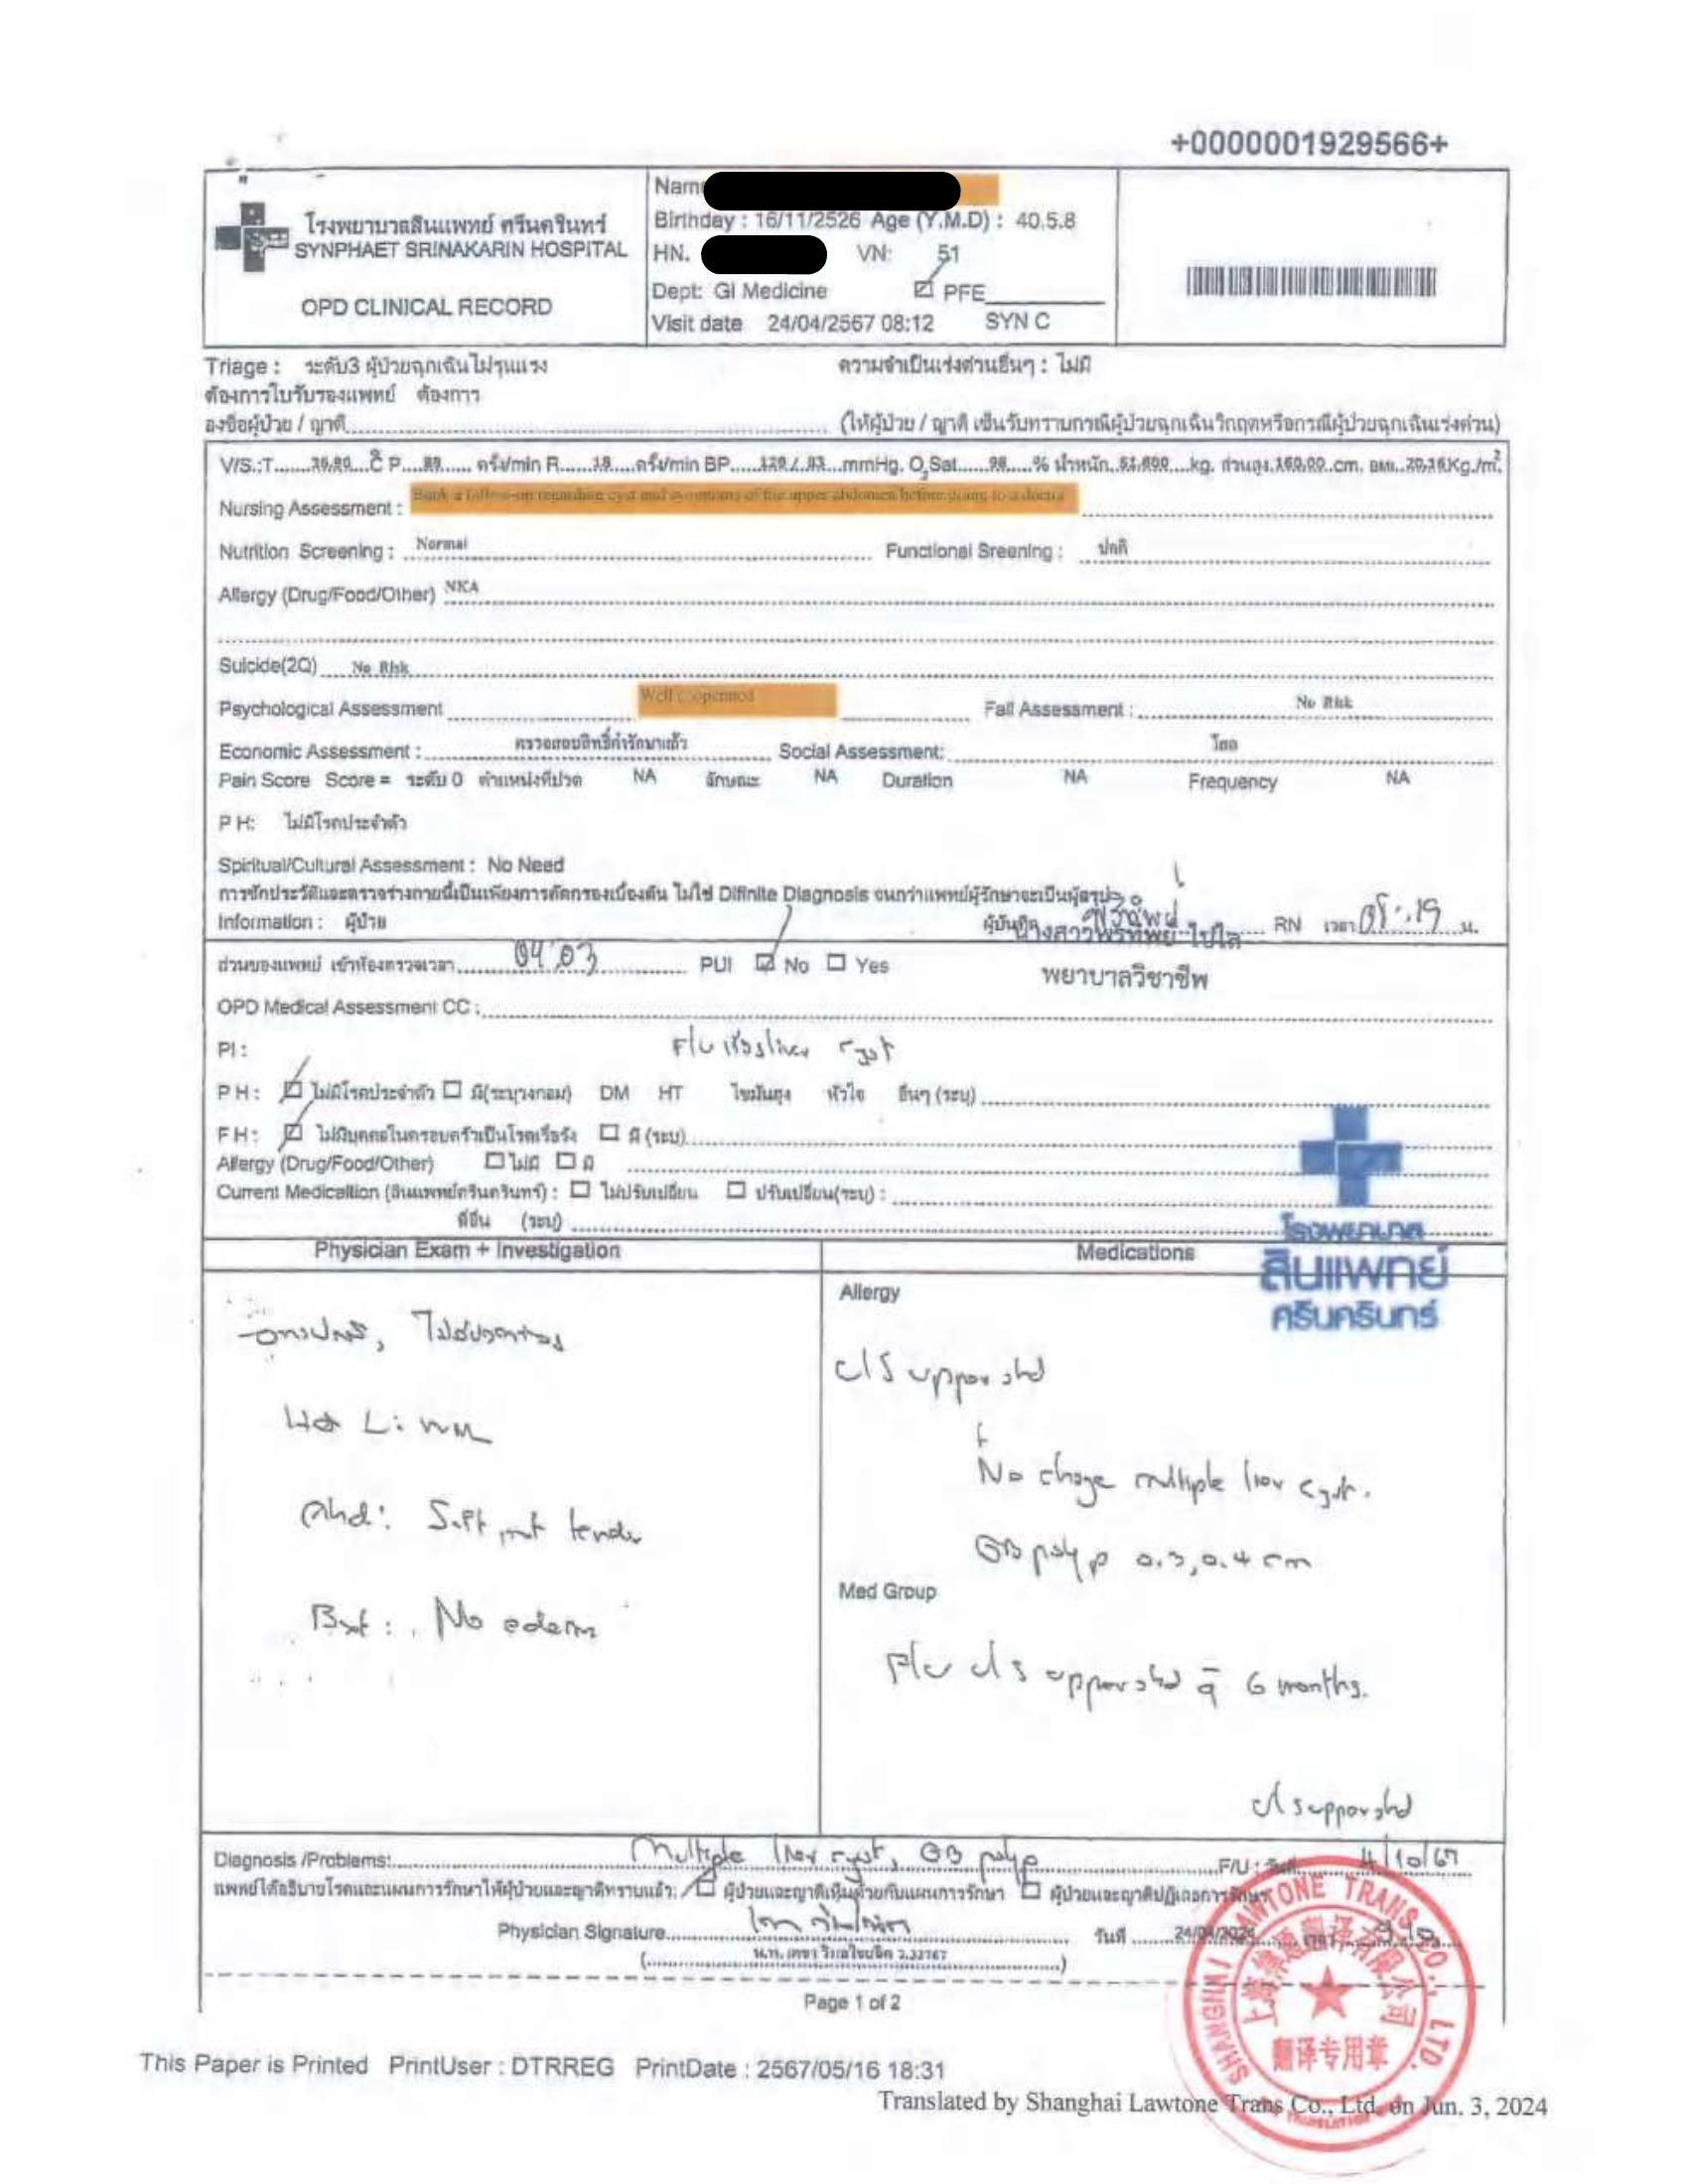 +0000001929566+
โรงพยาบาลสินแพทย์ ศรีนครินทร์
SYNPHAET SRINAKARIN HOSPITAL
OPD CLINICAL RECORD
Name
Birthday : 16/11/2526 Age (Y.M.D) : 40.5.8
HN. VN: 51
Dept: GI Medicine ☑ PFE
Visit date 24/04/2567 08:12 SYN C
Triage : ระดับ3 ผู้ป่วยฉุกเฉินไม่รุนแรง ความจำเป็นเร่งด่วนอื่นๆ : ไม่มี
ต้องการใบรับรองแพทย์ ต้องการ
ลงชื่อผู้ป่วย / ญาติ (ให้ผู้ป่วย / ญาติ เซ็นรับทราบกรณีผู้ป่วยฉุกเฉินวิกฤตหรือกรณีผู้ป่วยฉุกเฉินเร่งด่วน)
V/S.:T C P ครั้ง/min R 18 ครั้ง/min BP mmHg. O2Sat 98 % น้ำหนัก kg. ส่วนสูง 160.00 cm. BMI Kg./m2
Nursing Assessment : Book a follow-up regarding cyst and symptoms of the upper abdomen before going to a doctor
Nutrition Screening : Normal Functional Sreening : ปกติ
Allergy (Drug/Food/Other) NKA
Suicide(2Q) No Risk
Psychological Assessment Well Fall Assessment : No Risk
Economic Assessment : ตรวจสอบสิทธิ์ค่ารักษาแล้ว Social Assessment: โสด
Pain Score Score = ระดับ 0 ตำแหน่งที่ปวด NA ลักษณะ NA Duration NA Frequency NA
P H: ไม่มีโรคประจำตัว
Spiritual/Cultural Assessment : No Need
การซักประวัติและตรวจร่างกายนี้เป็นเพียงการคัดกรองเบื้องต้น ไม่ใช่ Difinite Diagnosis จนกว่าแพทย์ผู้รักษาจะเป็นผู้สรุป
Information : ผู้ป่วย ผู้บันทึก RN เวลา น.
พยาบาลวิชาชีพ
ส่วนของแพทย์ เข้าห้องตรวจเวลา PUI ☑ No ☐ Yes
OPD Medical Assessment CC :
PI : liver cyst
P H : ☑ ไม่มีโรคประจำตัว ☐ มี(ระบุวงกลม) DM HT ไขมันสูง หัวใจ อื่นๆ (ระบุ)
F H : ☑ ไม่มีบุคคลในครอบครัวเป็นโรคเรื้อรัง ☐ มี (ระบุ)
Allergy (Drug/Food/Other) ☐ ไม่มี ☐ มี
Current Medicaltion (สินแพทย์ศรีนครินทร์) : ☐ ไม่ปรับเปลี่ยน ☐ ปรับเปลี่ยน(ระบุ) :
ที่อื่น (ระบุ)
โรงพยาบาล
สินแพทย์
ศรีนครินทร์
Physician Exam + Investigation Medications
Allergy
U/S upper abd
No change multiple liver cyst.
GB polyp 0.3, 0.4 cm
Abd: Soft, not tender
Ext : No edema
Med Group
F/U U/S upper abd q 6 months.
U/S upper abd
Diagnosis /Problems: Multiple liver cyst, GB polyp F/U : วันที่ /10/67
แพทย์ได้อธิบายโรคและแผนการรักษาให้ผู้ป่วยและญาติทราบแล้ว: ☐ ผู้ป่วยและญาติเห็นด้วยกับแผนการรักษา ☐ ผู้ป่วยและญาติปฏิเสธการรักษา
Physician Signature วันที่ เวลา
Page 1 of 2
This Paper is Printed PrintUser : DTRREG PrintDate : 2567/05/16 18:31
Translated by Shanghai Lawtone Trans Co., Ltd. on Jun. 3, 2024
SHANGHAI LAWTONE TRANS CO., LTD.
翻译专用章